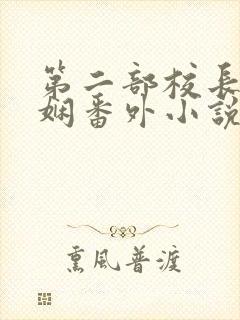 第二部校長
娴番外小說
熏風普渡